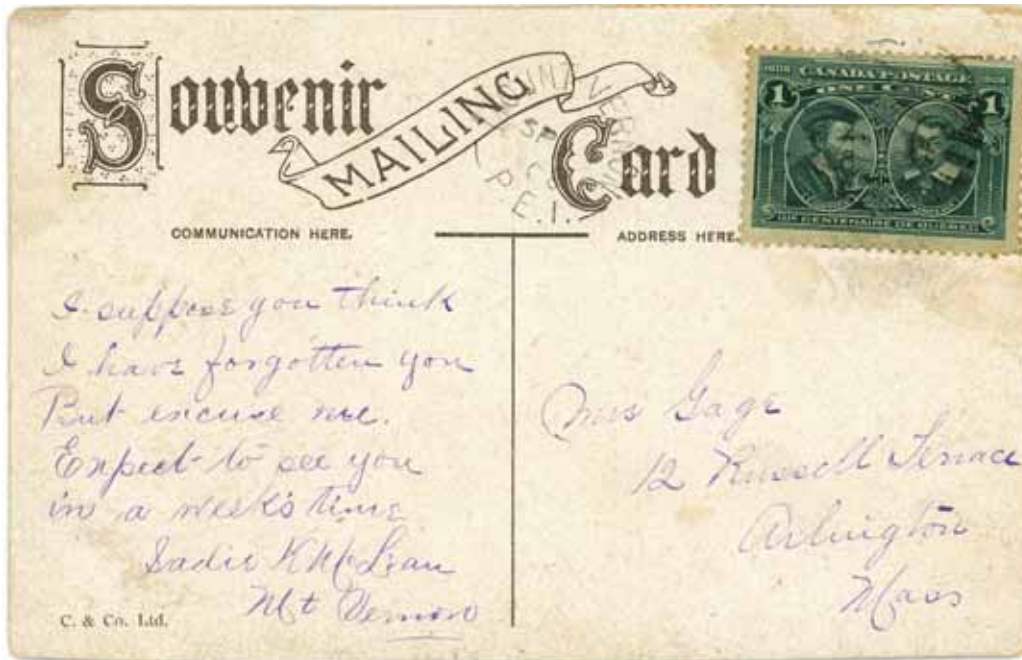 Souvenir
MAILING
Card
VERNON
SP
P.E.I.
1608 CANADA POSTAGE 1908
1 ONE CENT 1
IIIE CENTENAIRE DE QUEBEC
COMMUNICATION HERE.
ADDRESS HERE.
I suppose you think
I have forgotten you
But excuse me.
Expect to see you
in a week's time
Sadie K McLean
Mt Vernon
Mrs Gage
12 Russell Terrace
Arlington
Mass
C. & Co. Ltd.